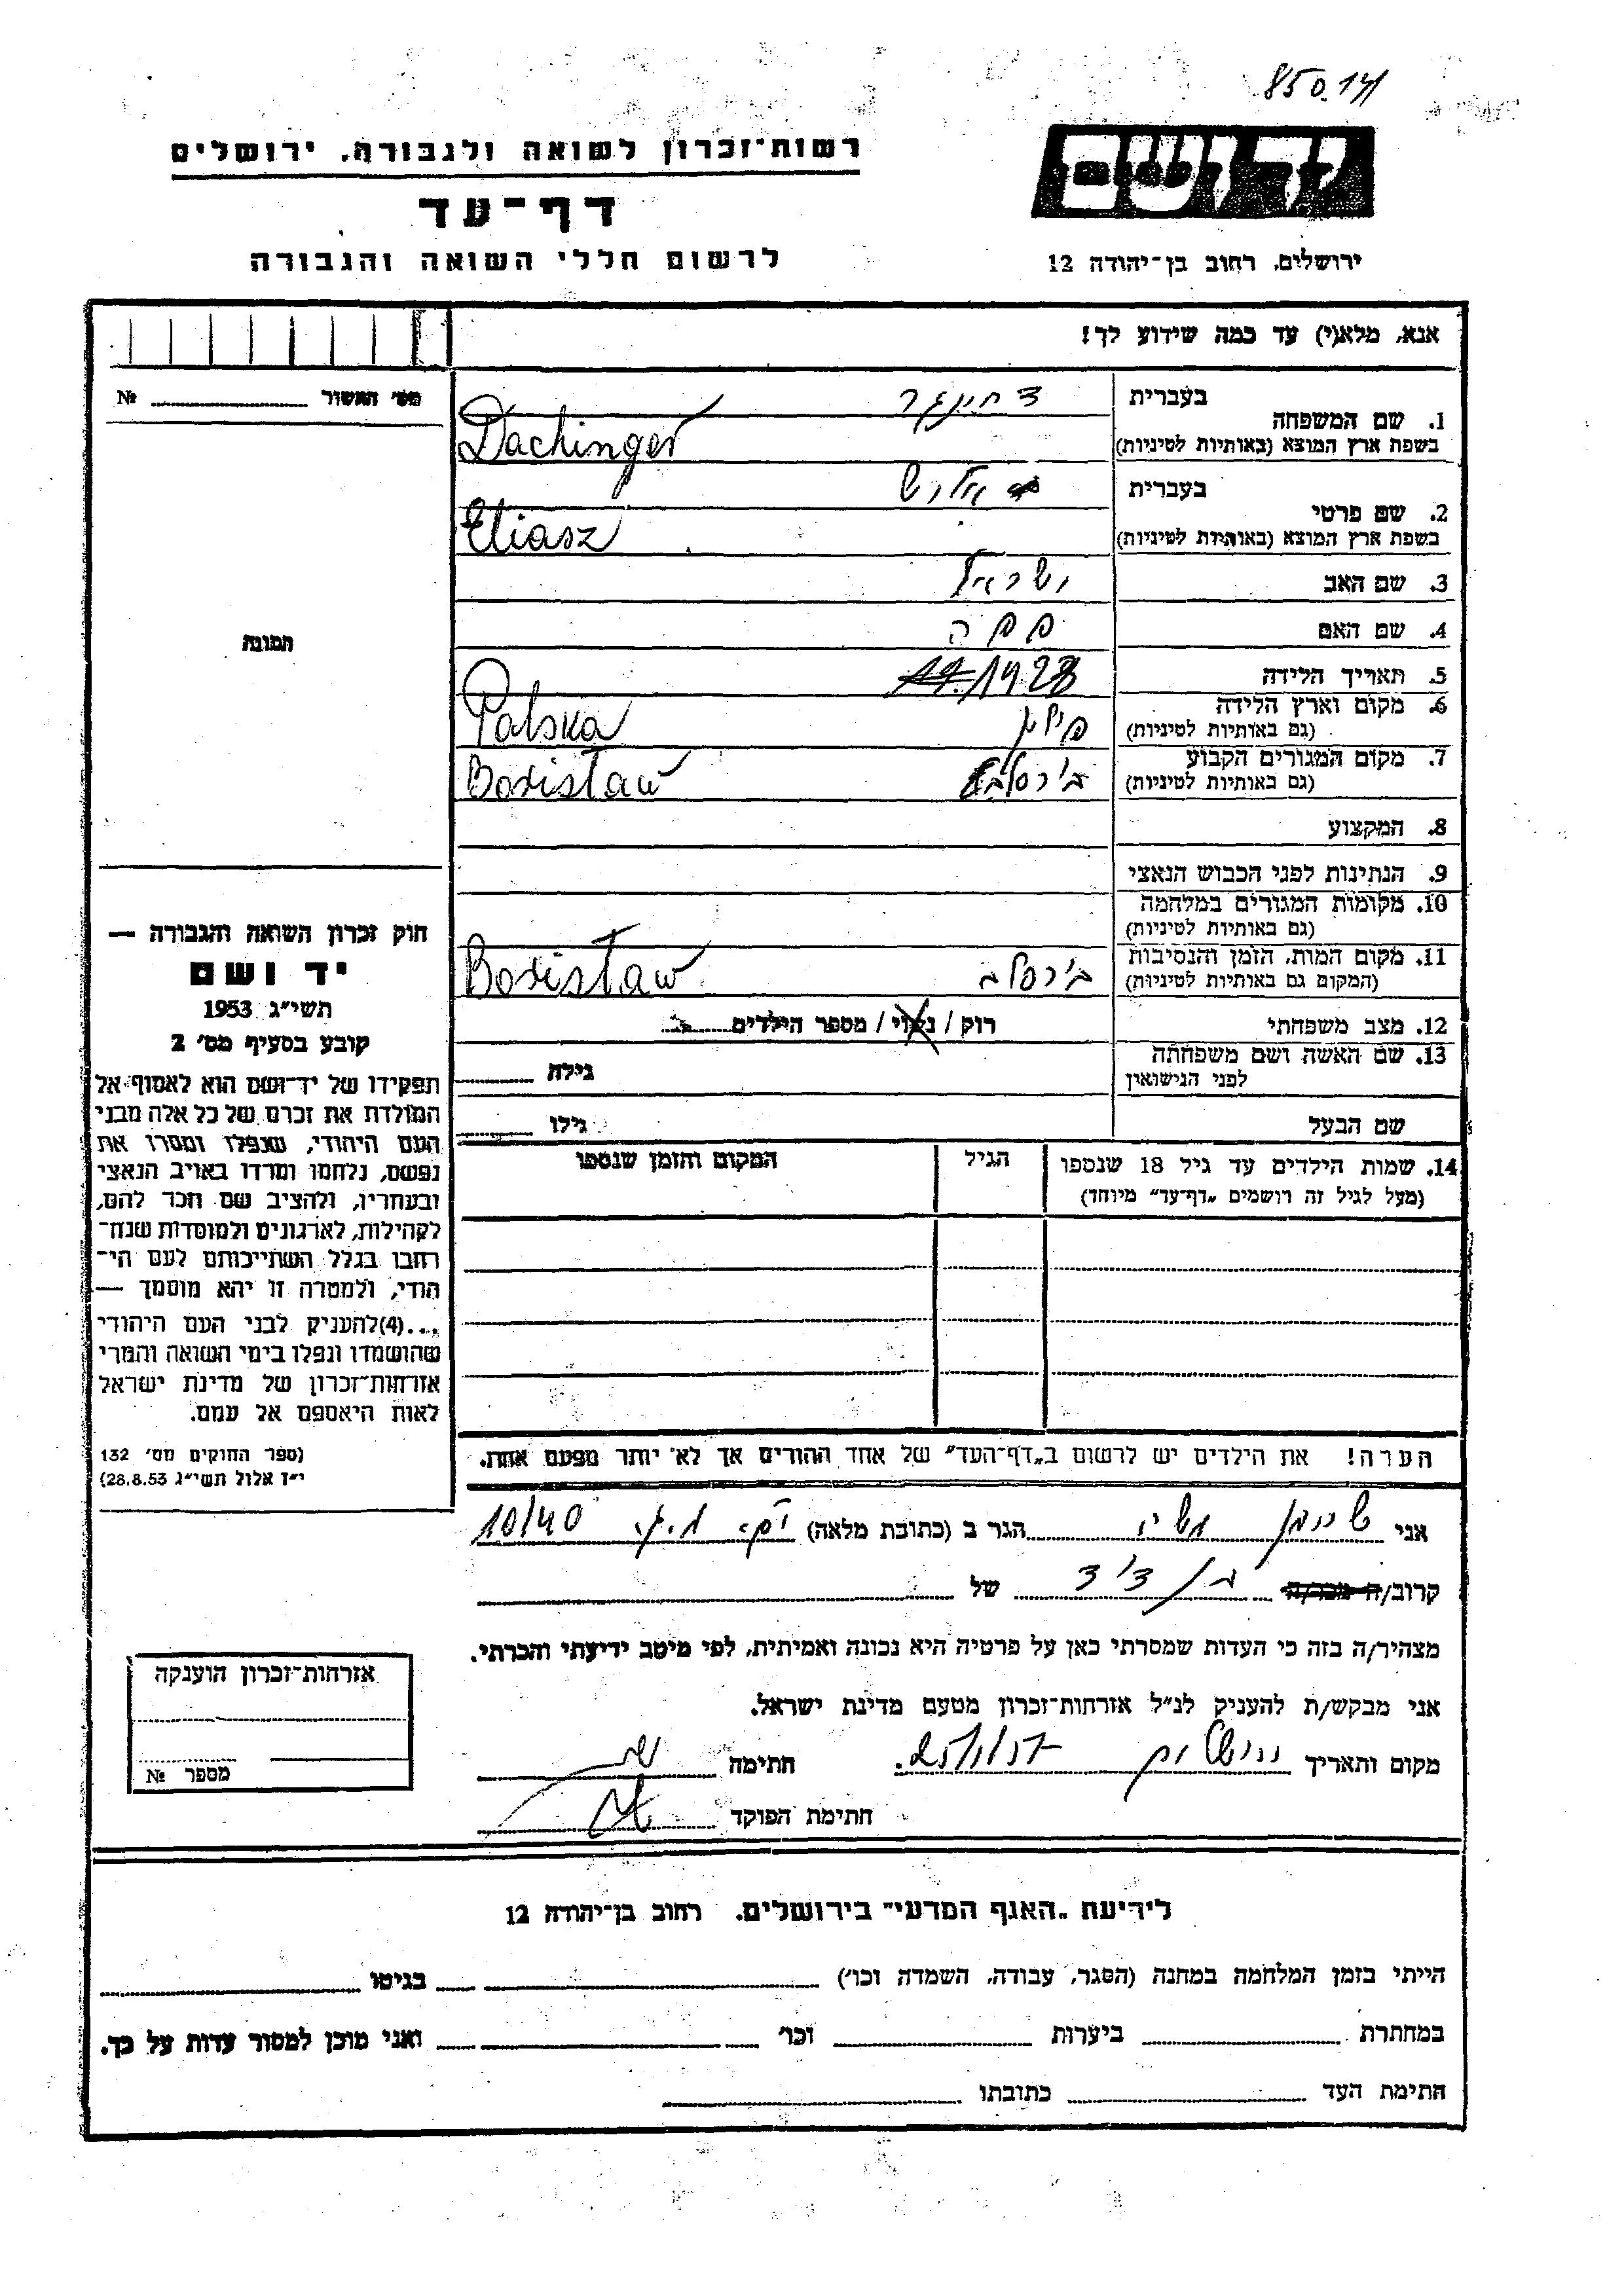 850.14
רשות־זכרון לשואה ולגבורה. ירושלים
יד ושם
דף־עד
לרשום חללי השואה והגבורה
ירושלים. רחוב בן־יהודה 12
אנא, מלא(י) עד כמה שידוע לך!
מס׳ האשור № 
1. שם המשפחה
בעברית דחינגר
בשפת ארץ המוצא (באותיות לטיניות) Dachinger
2. שם פרטי
בעברית אליש
בשפת ארץ המוצא (באותיות לטיניות) Eliasz
3. שם האב ישראל
4. שם האם
5. תאריך הלידה 1928
6. מקום וארץ הלידה פולין Polska
(גם באותיות לטיניות)
7. מקום המגורים הקבוע Borisław
(גם באותיות לטיניות)
8. המקצוע
9. הנתינות לפני הכבוש הנאצי
10. מקומות המגורים במלחמה
(גם באותיות לטיניות)
11. מקום המות, הזמן והנסיבות בירסלב Borisław
(המקום גם באותיות לטיניות)
12. מצב משפחתי רוק / נשוי / מספר הילדים
13. שם האשה ושם משפחתה גילה
לפני הנישואין
שם הבעל גילו
14. שמות הילדים עד גיל 18 שנספו הגיל המקום והזמן שנספו
(מעל לגיל זה רושמים „דף־עד״ מיוחד)
הערה! את הילדים יש לרשום ב„דף־העד״ של אחד ההורים אך לא יותר מפעם אחת.
תמונה
חוק זכרון השואה והגבורה —
יד ושם
תשי״ג 1953
קובע בסעיף מס׳ 2
תפקידו של יד־ושם הוא לאסוף אל
המולדת את זכרם של כל אלה מבני
העם היהודי, שנפלו ומסרו את
נפשם, נלחמו ומרדו באויב הנאצי
ובעוזריו, ולהציב שם וזכר להם,
לקהילות, לארגונים ולמוסדות שנח־
רבו בגלל השתייכותם לעם הי־
הודי, ולמטרה זו יהא מוסמך —
...(4)להעניק לבני העם היהודי
שהושמדו ונפלו בימי השואה והמרי
אזרחות־זכרון של מדינת ישראל
לאות היאספם אל עמם.
(ספר החוקים מס׳ 132
י״ז אלול תשי״ג 28.8.53)
אני הגר ב (כתובת מלאה) 10/40
קרוב/ה מכר/ה בן דוד של
מצהיר/ה בזה כי העדות שמסרתי כאן על פרטיה היא נכונה ואמיתית, לפי מיטב ידיעתי והכרתי.
אני מבקש/ת להעניק לנ״ל אזרחות־זכרון מטעם מדינת ישראל.
מקום ותאריך ירושלים חתימה
חתימת הפוקד
אזרחות־זכרון הוענקה
מספר №
לידיעת „האגף המדעי״ בירושלים. רחוב בן־יהודה 12
הייתי בזמן המלחמה במחנה (הסגר, עבודה, השמדה וכו׳) בגיטו
במחתרת ביערות וכו׳ ואני מוכן למסור עדות על כך.
חתימת העד כתובתו